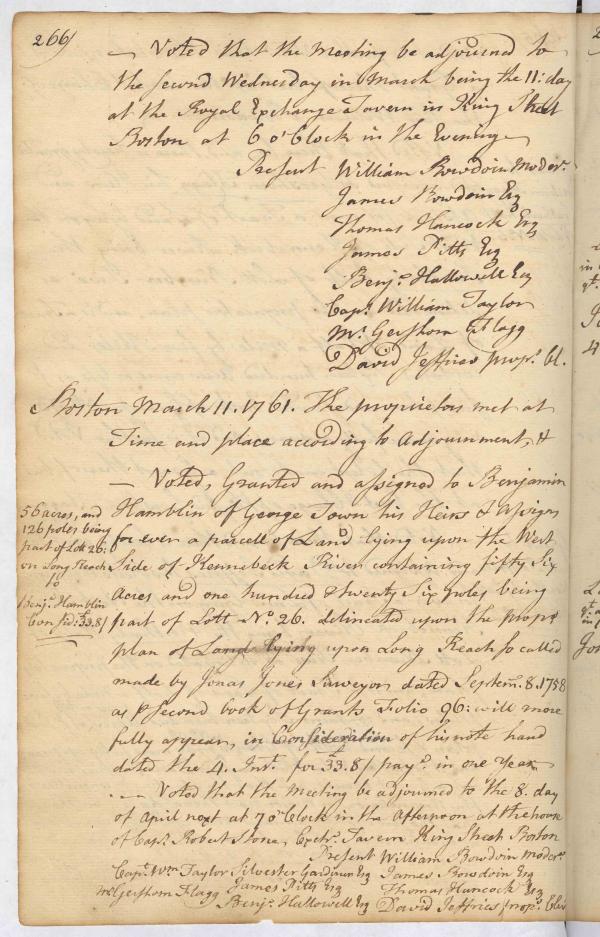 266
— Voted that the Meeting be adjourned to
the second Wednesday in March being the 11: day
at the Royal Exchange Tavern in King Street
Boston at 6 o'Clock in the Evening
Present William Bowdoin Moder.
James Bowdoin Esq
Thomas Hancock Esq
James Pitts Esq
Benj.a Hallowell Esq
Cap.t William Taylor
Mr. Gershom Flagg
David Jeffries prop.r Cl.
Boston March 11. 1761. The proprietors met at
Time and place according to Adjournment, &
— Voted, Granted and assigned to Benjamin
Hamblin of George Town his Heirs & Assigns
for ever a parcell of Land lying upon the West
Side of Kennebeck River containing fifty Six
Acres and one hundred & twenty Six poles being
part of Lott No. 26. delineated upon the prop.s
plan of Land lying upon Long Reach so called
made by Jonas Jones Surveyor dated Septem. 8. 1758
as p Second book of Grants Folio 96: will more
fully appear, in Consideration of his note hand
dated the 4. Inst. for £33.8/ pay.e in one Year
— Voted that the Meeting be adjourned to the 8. day
of April next at 7 o'Clock in the Afternoon at the house
of Cap.t Robert Stone, Tavern King Street Boston
Present William Bowdoin Moder.
Cap.t Wm Taylor Silvester Gardiner Esq James Bowdoin Esq
Mr Gershom Flagg James Pitts Esq Thomas Hancock Esq
Benj.a Hallowell Esq David Jeffries prop.s Cler
56 acres, and
126 poles being
part of Lott 26:
on Long Reach
to
Benj.a Hamblin
Consid: £33.8/